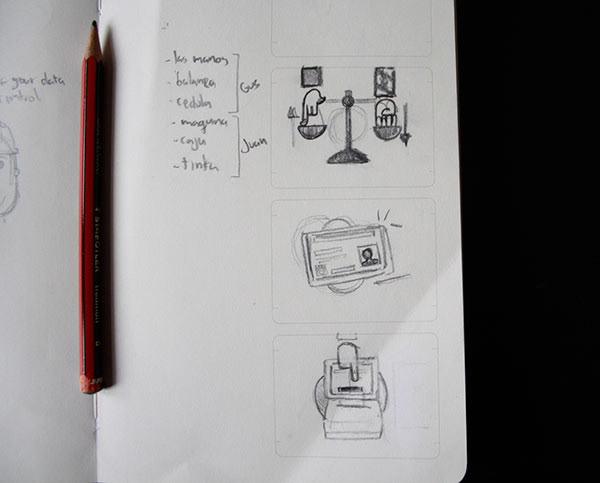 your data
control
- las manos
- balanza
- cedula
Gus
- maquina
- caja
- tinta
Juan